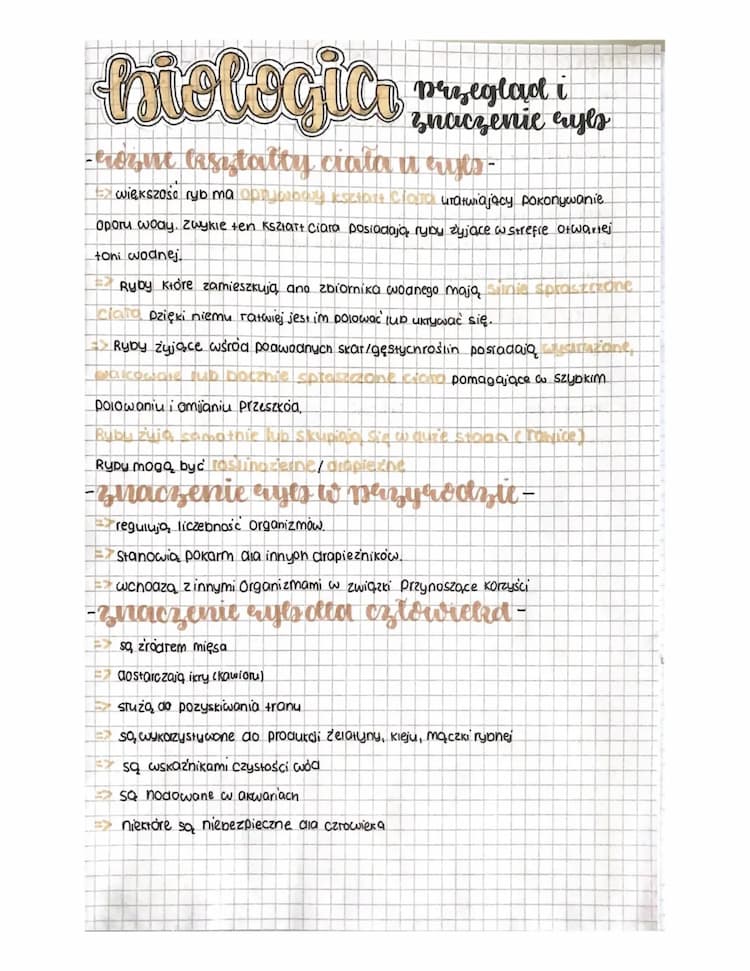 biologia przegląd i
znaczenie ryb
-różne kształty ciała u ryb-
=> większość ryb ma opływowy kształt ciała ułatwiający pokonywanie
oporu wody. Zwykle ten kształt ciała posiadają ryby żyjące w strefie otwartej
toni wodnej.
=> Ryby które zamieszkują dno zbiornika wodnego mają silnie spłaszczone
ciało. Dzięki niemu łatwiej jest im polować lub ukrywać się.
=> Ryby żyjące wśród podwodnych skał/gęstych roślin posiadają wydłużone,
walcowate lub bocznie spłaszczone ciało pomagające w szybkim
polowaniu i omijaniu przeszkód.
Ryby żyją samotnie lub skupiają się w duże stada (ławice)
Ryby mogą być roślinożerne/drapieżne
-znaczenie ryb w przyrodzie-
=> regulują liczebność organizmów.
=> Stanowią pokarm dla innych drapieżników.
=> wchodzą z innymi organizmami w związki przynoszące korzyści
-znaczenie ryb dla człowieka-
=> są źródłem mięsa
=> dostarczają ikry (kawioru)
=> służą do pozyskiwania tranu
=> są wykorzystywone do produkcji żelatyny, kleju, mączki rybnej
=> są wskaźnikami czystości wód
=> są hodowane w akwariach
=> niektóre są niebezpieczne dla człowieka